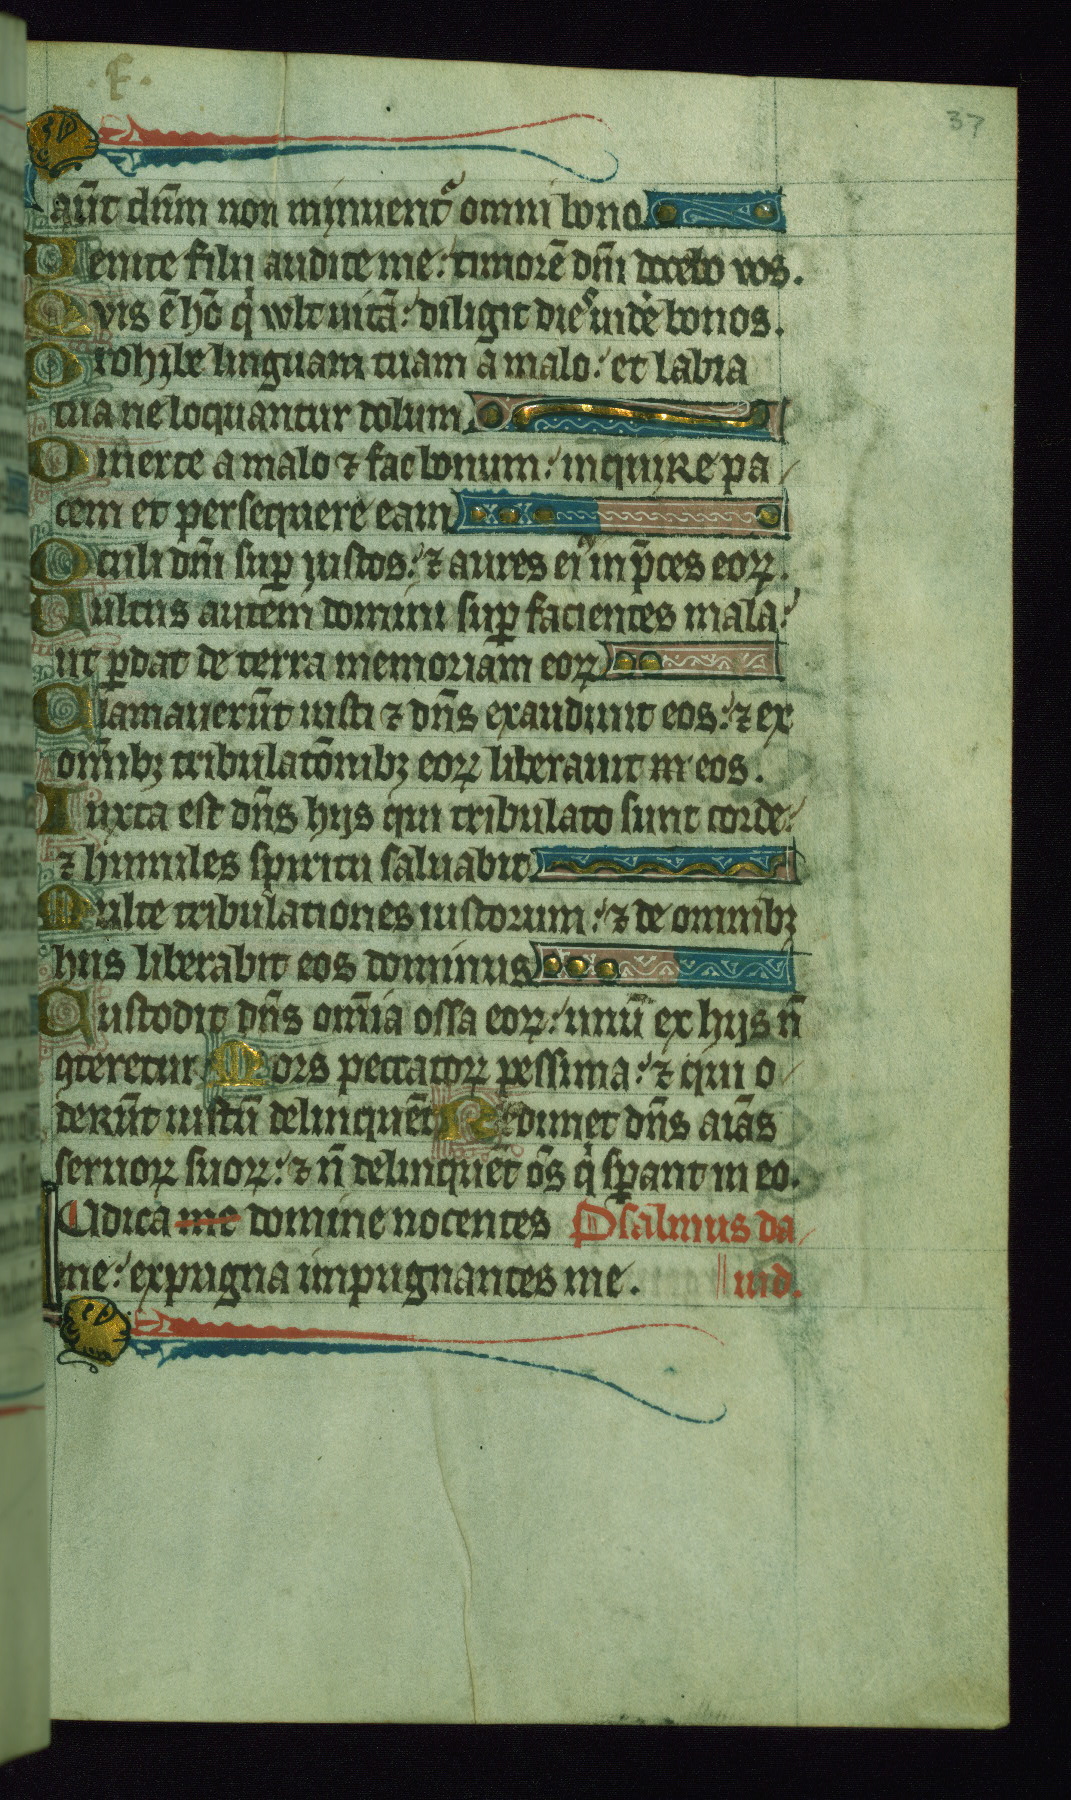 .F.
37
aūt dn̄m non minuentᷣ omni bono
Venite filii audite me: timorē dn̄i docebo vos.
Qvis ē hō q̇ vult uitā: diligit dies uidē bonos.
Prohibe linguam tuam a malo: et labia
tua ne loquantur dolum
Diuerte a malo ⁊ fac bonum: inquire pa
cem et persequere eam
Oculi dn̄i suꝑ iustos: ⁊ aures eiꝰ in p̄ces eoꝝ.
Uultus autem domini suꝑ facientes mala:
ut ꝑdat de terra memoriam eoꝝ
Clamauerūt iusti ⁊ dn̄s exaudiuit eos: ⁊ ex
om̄ibꝫ tribulatōnibꝫ eoꝝ liberauit eos.
Iuxta est dn̄s hijs qui tribulato sunt corde:
⁊ humiles spiritu saluabit
Multe tribulationes iustorum: ⁊ de omnibꝫ
hiis liberabit eos dominus
Custodit dn̄s om̄ia ossa eoꝝ: unū ex hijs n̄
ꝯteretur Mors peccatoꝝ pessima: ⁊ qui o
derūt iustū delinquēt Redimet dn̄s aīas
seruoꝝ suoꝝ: ⁊ n̄ delinquēt ōs q̇ sꝑant in eo.
Iudica me domine nocentes Psalmus da
me: expugna inpugnantes me. uid.